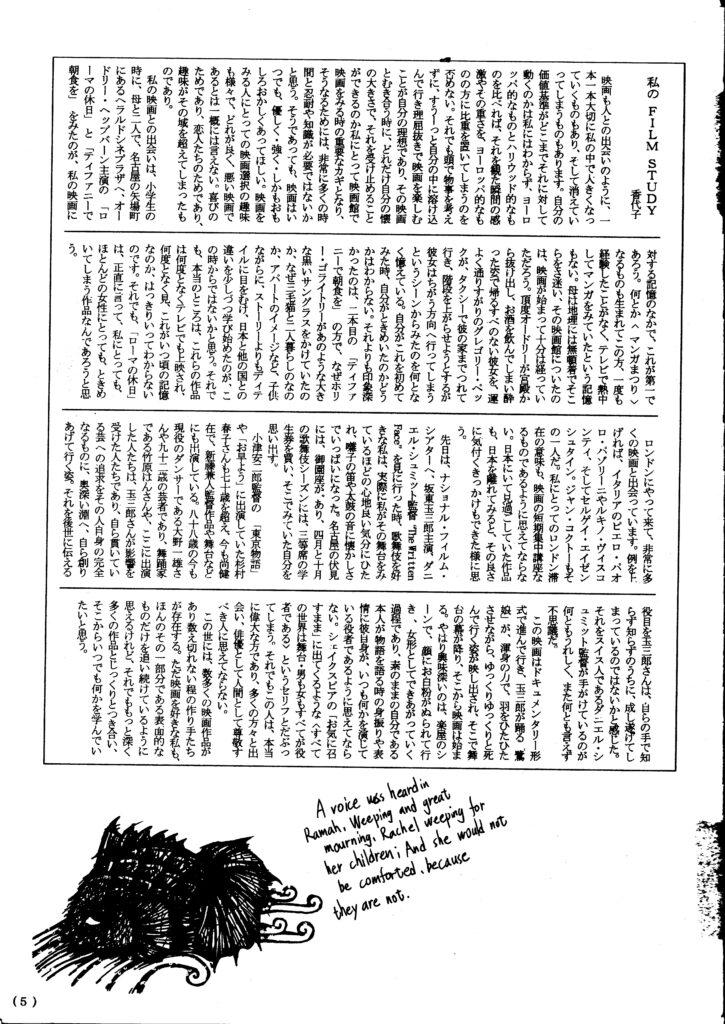 私の FILM STUDY
香代子
映画も人との出会いのように、一
本一本大切に私の中で大きくなっ
ていくものもあり、そして消えてい
ってしまうものもあります。自分の
価値基準がどこまでそれに対して
動くのかは私にはわからず、ヨーロ
ッパ的なものとハリウッド的なも
のを比べれば、それを観た瞬間の感
激やその重さを、ヨーロッパ的なも
のの方に比重を置いてしまうのを
否めない。それでも頭で物事を考え
ずに、すうーっと自分の中に溶け込
んで行き理屈抜きで映画を楽しむ
ことが自分の理想であり、その映画
とむき合う時に、どれだけ自分の懐
の大きさで、それを受け止めること
ができるのか私にとって映画館で
映画をみる時の重要なカギとなり、
そうなるためには、非常に多くの時
間と忍耐や知識が必要ではないか
と思う。そうであっても、映画はい
つでも、優しく・強く・しかもおも
しろおかしくあってほしい。映画を
みる人にとっての映画選択の趣味
も様々で、どれが良く、悪い映画で
あるとは一概には言えない。喜びの
ためであり、恋人たちのためであり、
趣味がその域を超えてしまったも
のであり。
私の映画との出会いは、小学生の
時に、母と二人で、名古屋の矢場町
にあるヘラルドシネプラザへ、オー
ドリー・ヘップバーン主演の「ロ
ーマの休日」と「ティファニーで
朝食を」をみたのが、私の映画に
対する記憶のなかで、これが第一で
あろう。何とか〈マンガまつり〉
なるものも生まれてこの方、一度も
経験したことがなく、テレビで熱中
してマンガをみていたという記憶
もない。母は地理には無頓着でそこ
らをさ迷い、その映画館についたの
は、映画が始まって十分は経ってい
ただろう。頂度オードリーが宮殿か
ら抜け出し、お酒を飲んでしまい酔
った姿で帰るすべのない彼女を、運
よく通りすがりのグレゴリー・ペッ
クが、タクシーで彼の家までつれて
行き、階段を上がらせようとするが
彼女はちがう方向へ行ってしまう
というシーンからみたのを何とな
く憶えている。自分がこれを初めて
みた時、自分がときめいたのかどう
かはわからない。それよりも印象深
かったのは、二本目の「ティファ
ニーで朝食を」の方で、なぜホリ
ー・ゴライトリーがあのような大き
な黒いサングラスをかけていたの
か、なぜ三毛猫と二人暮らしのなの
か、アパートのイメージなど、子供
ながらに、ストーリーよりもディテ
イルに目をむけ、日本と他の国との
違いを少しづつ学び始めたのが、こ
の時からではないかと思う。それで
も、本当のところは、これらの作品
は何度となくテレビでも上映され、
何度となく見、これがいつ頃の記憶
なのか、はっきりいってわからない
のです。それでも、「ローマの休日」
は、正直に言って、私にとっても、
ほとんどの女性にとっても、ときめ
いてしまう作品なんであろうと思
う。
ロンドンにやって来て、非常に多
くの映画と出会っています。例を上
げれば、イタリアのピエロ・パオ
ロ・パゾリーニやルキノ・ヴィスコ
ンティ、そしてセルゲイ・エイゼン
シュタイン。ジャン・コクトーもそ
の一人だ。私にとってのロンドン滞
在の意味も、映画の短期集中講座な
るものであるように思えてならな
い。日本にいて見過ごしていた作品
も、日本を離れてみると、その良さ
に気付くきっかけもできた様に思
う。
先日は、ナショナル・フィルム・
シアターへ、坂東玉三郎主演、ダニ
エル・シュミット監督 "The Written
Face"を見に行った時、歌舞伎を好
きな私は、実際に私がその舞台をみ
ているほどの心地良い気分にひた
れ、囃子の笛や太鼓の音に懐かしさ
でいっぱいになった。名古屋の伏見
には、御園座があり、四月と十月
の歌舞伎シーズンには、三等席の学
生券を買い、そこでみていた自分を
思い出す。
小津安二郎監督の「東京物語」
や「お早よう」に出演していた杉村
春子さんも七十歳を超え、今も尚健
在で、新藤兼人監督作品や舞台など
にも出演している。八十八歳の今も
現役のダンサーである大野一雄さ
んや九十二歳の芸者であり、舞踊家
である竹原はんさんや、ここに出演
した人たちは、玉三郎さんが影響を
受けた人たちであり、自ら貫いてい
る芸への追求をその人自身の完全
なるものに、奥深い淵へ、自ら創り
あげて行く姿、それを後世に伝える
役目を玉三郎さんは、自らの手で知
らず知らずのうちに、成し遂げてし
まっているのではないかと感じた。
それをスイス人であるダニエル・シ
ュミット監督が手がけているのが
何ともうれしく、また何とも言えず
不思議だ。
この映画はドキュメンタリー形
式で進んで行き、玉三郎が踊る「鷺
娘」が、渾身の力で、羽をひたひた
させながら、ゆっくりゆっくりと死
んで行く姿が映し出され、そこで舞
台の幕が降り、そこから映画は始ま
る。やはり興味深いのは、楽屋のシ
ーンで、顔にお白粉がぬられて行
き、女形としてできあがっていく
過程であり、素のままの自分である
本人が物語を語る時の身振りや表
情に彼自身が、いつも何かを演じて
いる役者であるように思えてなら
ない。シェイクスピアの「お気に召
すまま」に出てくるような〈すべて
の世界は舞台・男も女もすべてが役
者である〉というセリフとだぶっ
てしまう。それでもこの人は、本当
に偉大な方であり、多くの方々と出
会い、俳優として人間として尊敬す
べき人に思えてならない。
この世には、数多くの映画作品が
あり数え切れない程の作り手たち
が存在する。ただ映画を好きな私も、
ほんのその一部分である表面的な
ものだけを追い続けているように
思えるけれど、それでももっと深く
多くの作品とじっくりとつき合い、
そこからいつでも何かを学んでい
たいと思う。
A voice was heard in
Ramah, Weeping and great
mourning, Rachel weeping for
her children; And she would not
be comforted, because
they are not.
(5)